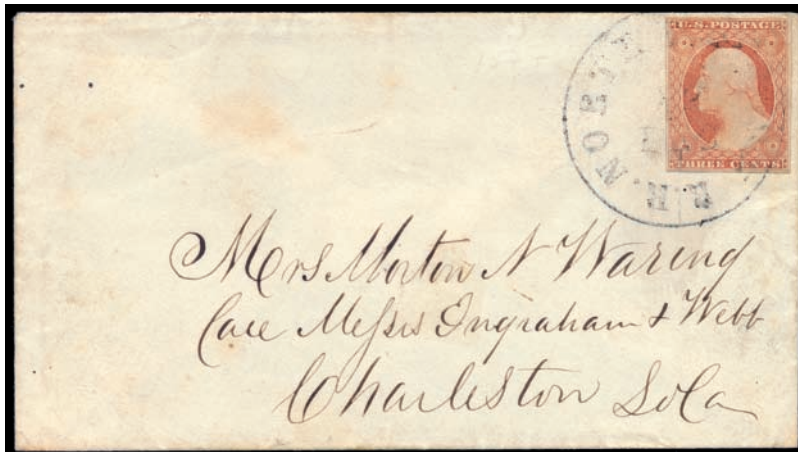 U.S. POSTAGE
THREE CENTS
R.R. NORTH
Mrs Morton N Waring
Care Messrs Ingraham & Webb
Charleston So Ca